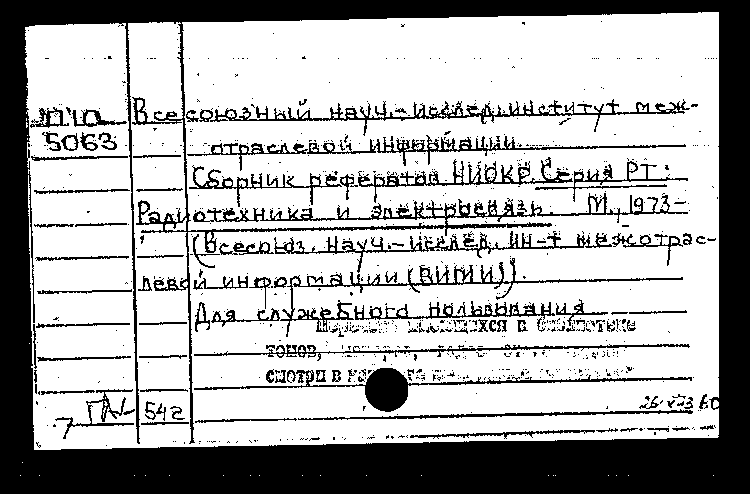 П40 Всесоюзный науч.-исслед.институт меж-
5063 отраслевой информации.
Сборник рефератов НИОКР. Серия РТ:
Радиотехника и электросвязь. М., 1973-
(Всесоюз. науч.-исслед. ин-т межотрас-
левой информации (ВИМИ)).
Для служебного пользования
Перечень имеющихся в библиотеке
томов,
смотри в
7 542